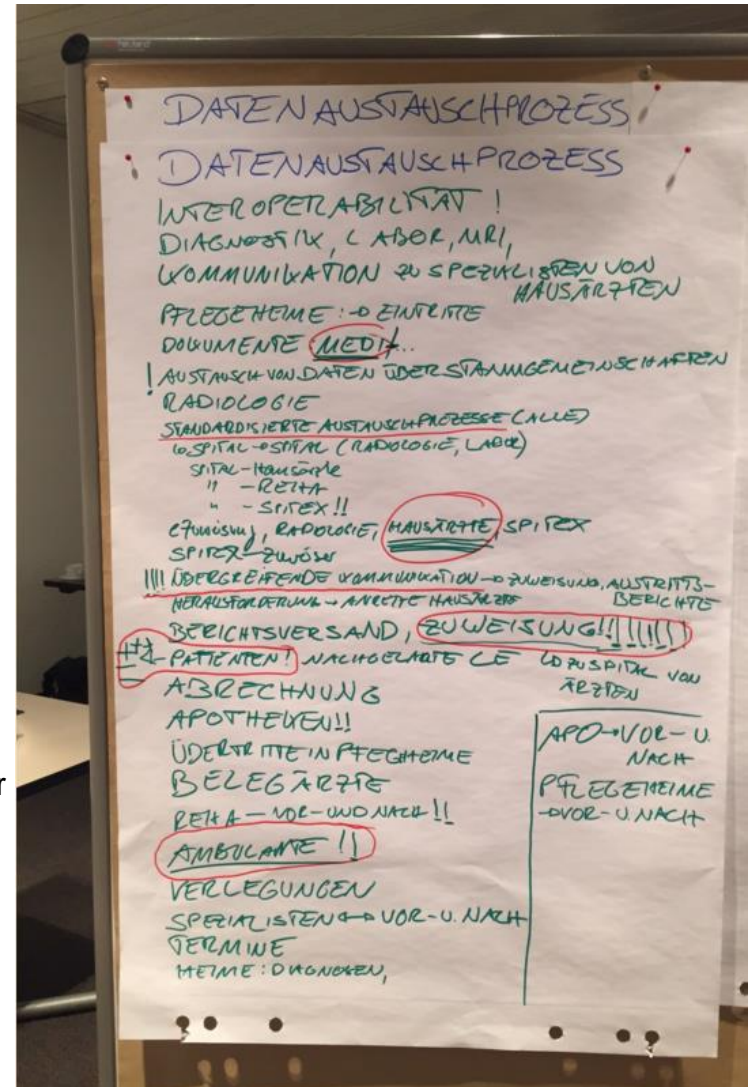 DATENAUSTAUSCHPROZESS
DATENAUSTAUSCHPROZESS
INTEROPERABILITÄT !
DIAGNOSTIK, LABOR, MRI,
KOMMUNIKATION ZU SPEZIALISTEN VON
HAUSÄRZTEN
PFLEGEHEIME : → EINTRITTE
DOKUMENTE MEDI...
! AUSTAUSCH VON DATEN ÜBER STAMMGEMEINSCHAFTEN
RADIOLOGIE
STANDARDISIERTE AUSTAUSCHPROZESSE (ALLE)
↳ SPITAL → SPITAL (RADIOLOGIE, LABOR)
SPITAL - Hausärzte
" - REHA
" - SPITEX !!
eZuweisung, RADIOLOGIE, HAUSÄRZTE, SPITEX
SPITEX - Zuweiser
!!!! ÜBERGREIFENDE KOMMUNIKATION → ZUWEISUNG, AUSTRITTS-
BERICHTE
HERAUSFORDERUNG → HAUSÄRZTE
BERICHTSVERSAND, ZUWEISUNG!!!!!!!
↳ ZU SPITAL VON
ÄRZTEN
PATIENTEN! NACHGELAGTE LE
ABRECHNUNG
APOTHEKEN!!
ÜBERTRITTE IN PFEGHEIME
BELEGÄRZTE
REHA - VOR- UND NACH !!
AMBULANTE !!
VERLEGUNGEN
SPEZIALISTEN ↔ VOR- U. NACH
TERMINE
HEIME : DIAGNOSEN,
APO → VOR- U.
NACH
PFLEGEHEIME
→ VOR- U. NACH
r